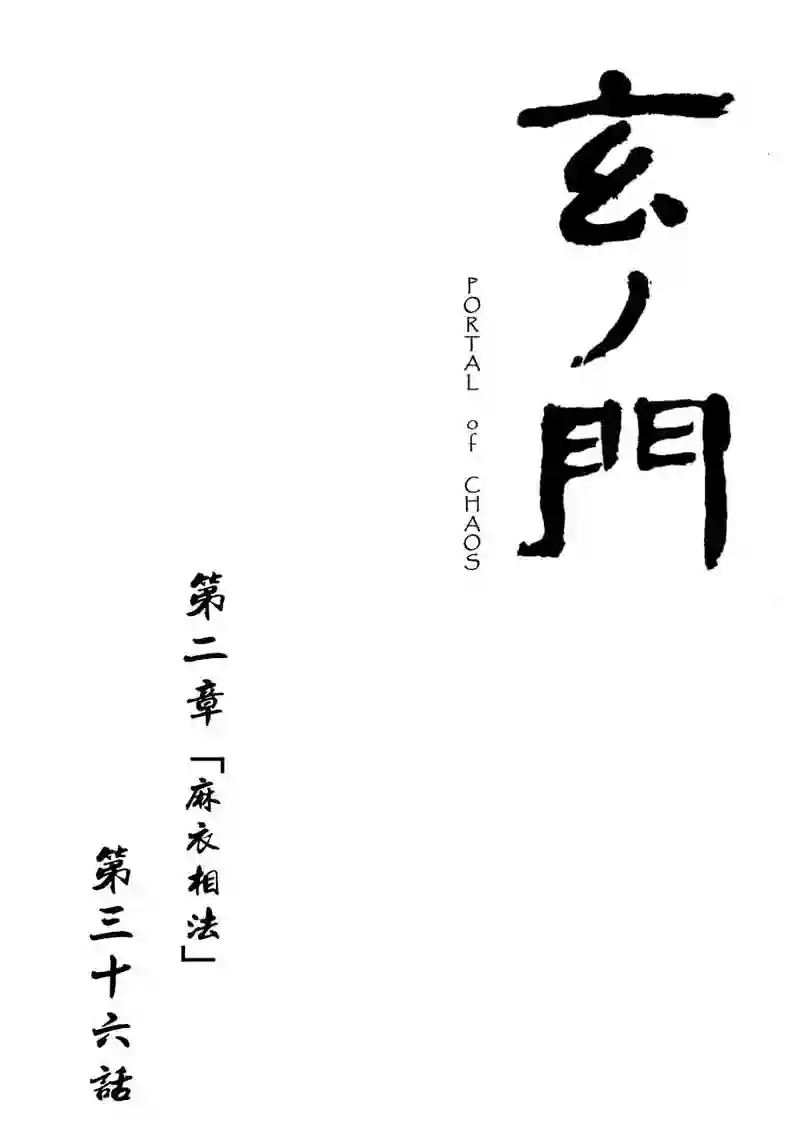 玄ノ門
PORTAL of CHAOS
第二章「麻衣相法」
第三十六話